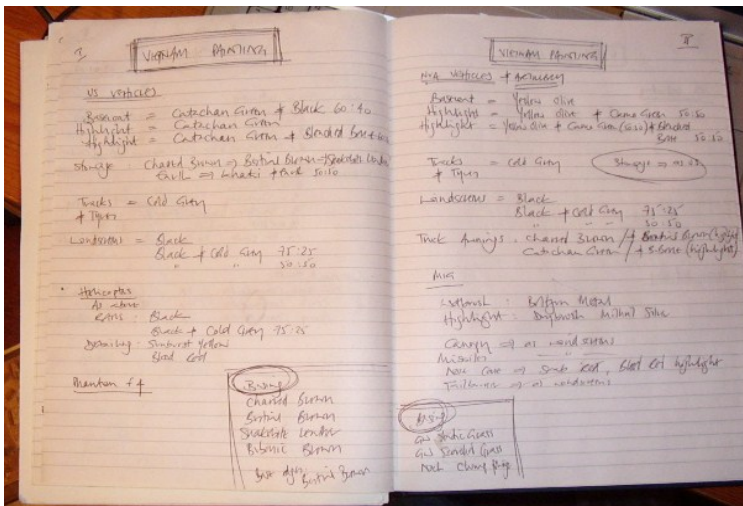 3
VIETNAM PAINTING
US VEHICLES
Basecoat = Catachan Green + Black 60:40
Highlight = Catachan Green
Highlight = Catachan Green + Bleached Bone
Stowage : Charred Brown => Bestial Brown => Snakebite Leather
Earth => Khaki + 50:50
Tracks = Cold Grey
+ Tyres
Windscreens = Black
Black + Cold Grey 75:25
" " 50:50
Helicopters
As above
Black
Black + Cold Grey 75:25
Detailing : Sunburst Yellow
Blood Red
Phantom F4
Basing
Charred Brown
Bestial Brown
Snakebite Leather
Bubonic Brown
Base edges Bestial Brown
4
VIETNAM PAINTING
NVA VEHICLES + ARTILLERY
Basecoat = Yellow Olive
Highlight = Yellow Olive + Camo Green 50:50
Highlight = Yellow Olive + Camo Green (50:50) + Bleached
Bone 50:50
Tracks = Cold Grey
+ Tyres
Stowage => as US
Windscreens = Black
Black + Cold Grey 75:25
" " 50:50
Truck Awnings : Charred Brown / + Bestial Brown (highlight)
Catachan Green / + B.Bone (highlight)
MIG
: Boltgun Metal
Highlight : Drybrush Mithril Silver
Canopy => as windscreens
Missiles
Nose Cone => Scab Red, Blood Red highlight
=> as windscreens
Basing
GW Static Grass
GW Scorched Grass
Noch